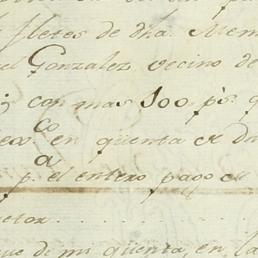 fletes de dha. Mem
Gonzalez vecino de
con mas 100 ps. q
en qüenta de D
p. el entero pago de
ctor
que de mi qüenta, en la